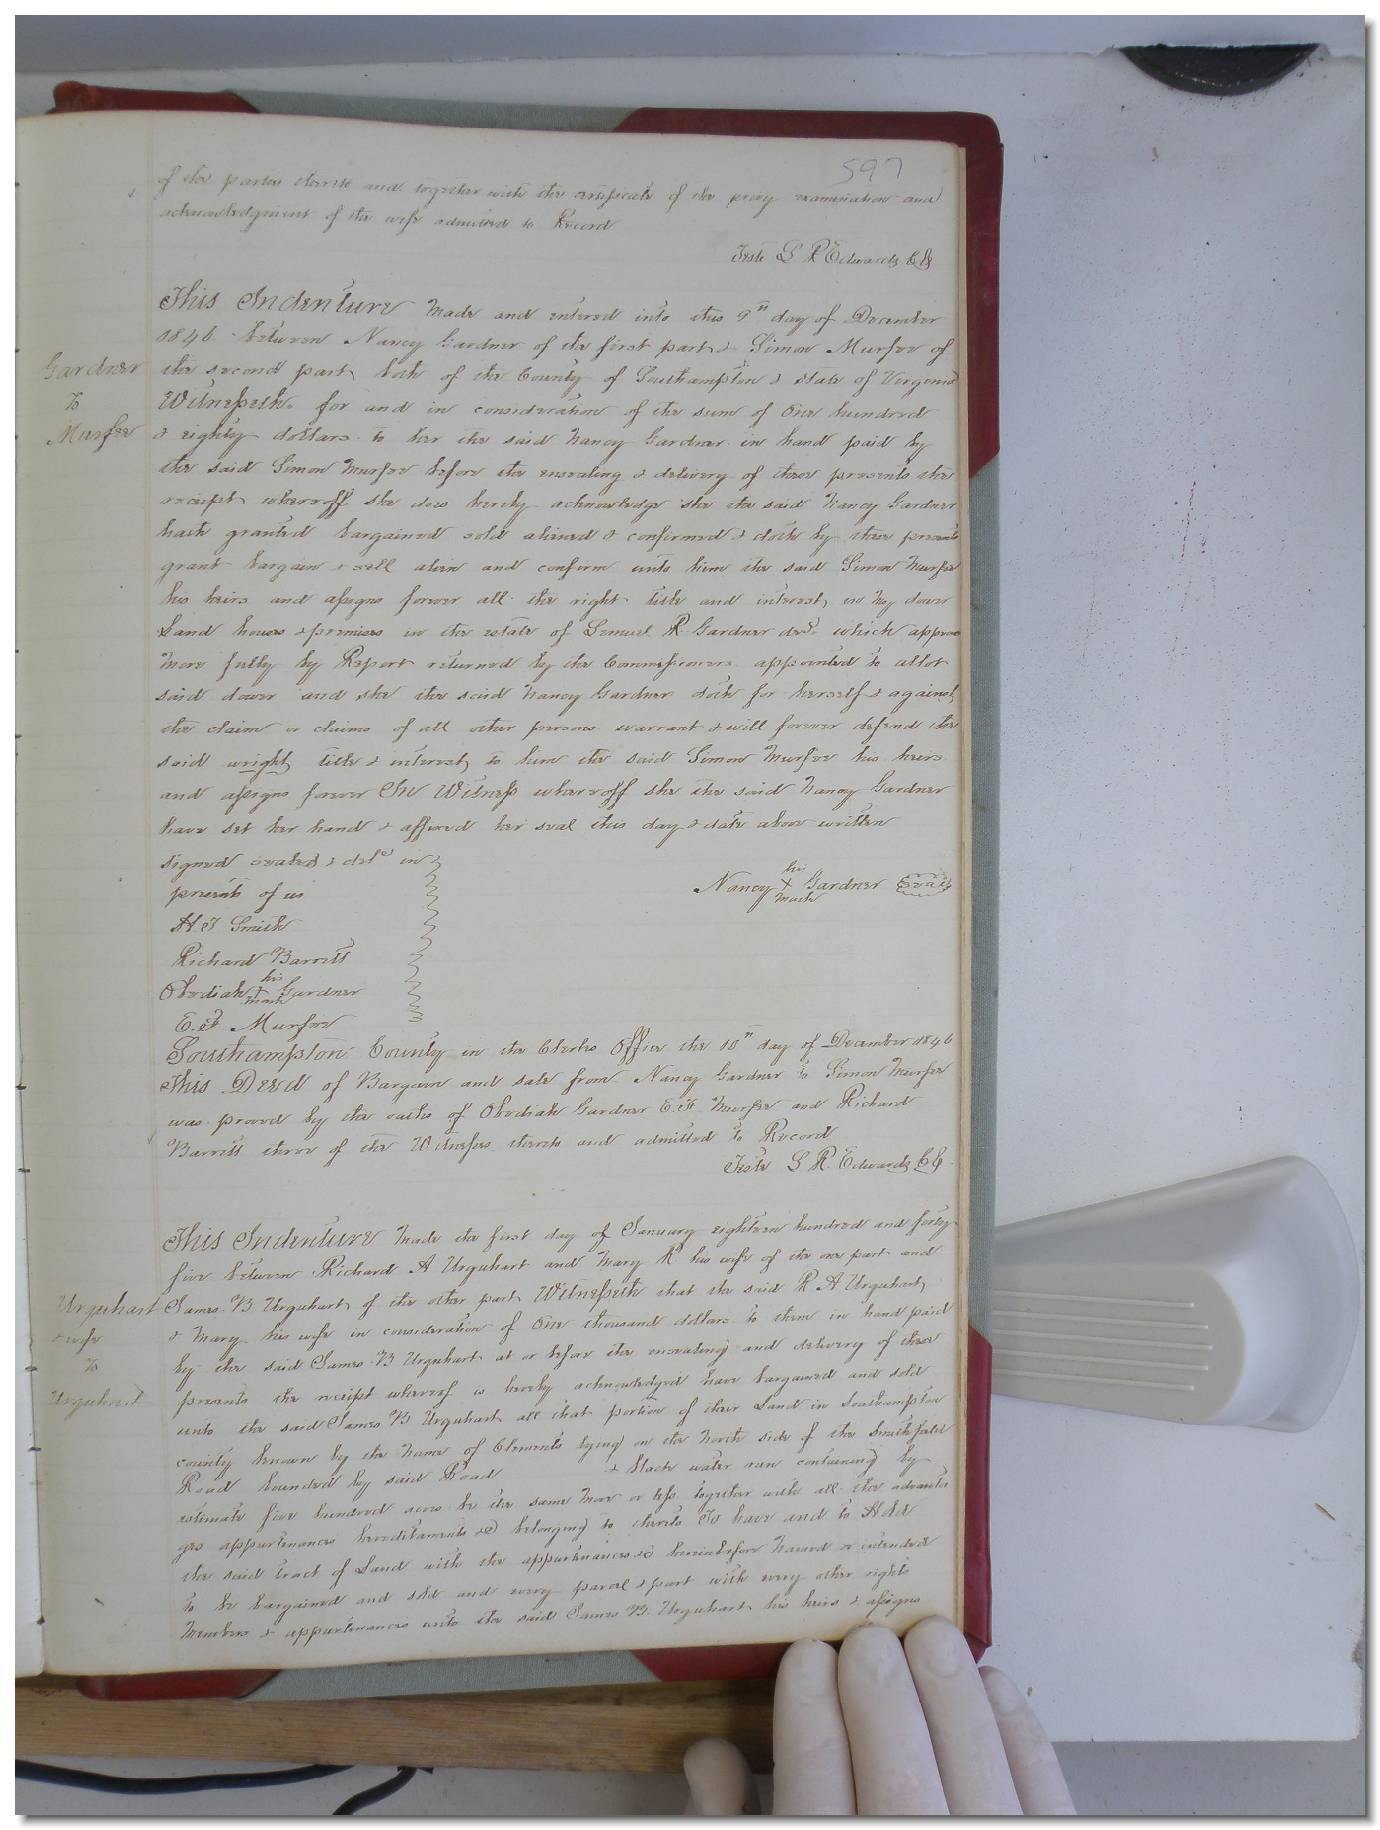 597
of the parties thereto and together with the certificate of the privy examination and
acknowledgment of the wife admitted to Record
Teste L R Edwards CC
This Indenture Made and entered into this 9th day of December
1846 between Nancy Gardner of the first part & Simon Murfee of
Gardner
to
Murfee
the second part both of the County of Southampton & state of Virginia
Witnesseth for and in consideration of the sum of One hundred
& eighty dollars to her the said Nancy Gardner in hand paid by
the said Simon Murfee before the ensealing & delivery of these presents the
receipt whereoff she does hereby acknowledge she the said Nancy Gardner
hath granted bargained sold aliened & confirmed & doth by these presents
grant bargain & sell alien and confirm unto him the said Simon Murfee
his heirs and assigns forever all the right title and interest in my dower
Land houses & premises in the estate of Lemuel R. Gardner decd. which appears
more fully by Report returned by the Commissioners appointed to allot
said dower and she the said Nancy Gardner doth for herself & against
the claim or claims of all other persons warrant & will forever defend the
said wright title & interest to him the said Simon Murfee his heirs
and assigns forever In Witness whereoff she the said Nancy Gardner
have set her hand & affixed her seal this day & date above written
signed sealed & deld in
presents of us
Nancy his X mark Gardner Seal
A T Smith
Richard Barrett
Obediah his X mark Gardner
E. F. Murfee
Southampton County in the Clerks Office the 10th day of December 1846
This Deed of Bargain and sale from Nancy Gardner to Simon Murfee
was proved by the oaths of Obediah Gardner E. F. Murfee and Richard
Barrett three of the Witnesses thereto and admitted to Record
Teste L R. Edwards CC
This Indenture Made the first day of January eighteen hundred and forty
five between Richard A Urquhart and Mary R his wife of the one part and
Urquhart
& wife
to
Urquhart
James B Urquhart of the other part Witnesseth that the said R A Urquhart
& Mary his wife in consideration of One thousand dollars to them in hand paid
by the said James B Urquhart at or before the ensealing and delivery of these
presents the receipt whereof is hereby acknowledged have bargained and sold
unto the said James B Urquhart all that portion of their Land in Southampton
county known by the Name of Clements lying on the North side of the Smithfield
Road bounded by said Road & black water run containing by
estimate five hundred acres be the same More or less together with all the advanta
ges appurtenances hereditaments &c belonging to thereto To have and to Hold
the said tract of Land with the appurtenances &c hereinbefore Named or intended
to be bargained and sold and every parcel & part with every other rights
Members & appurtenances unto the said James B. Urquhart his heirs & assigns